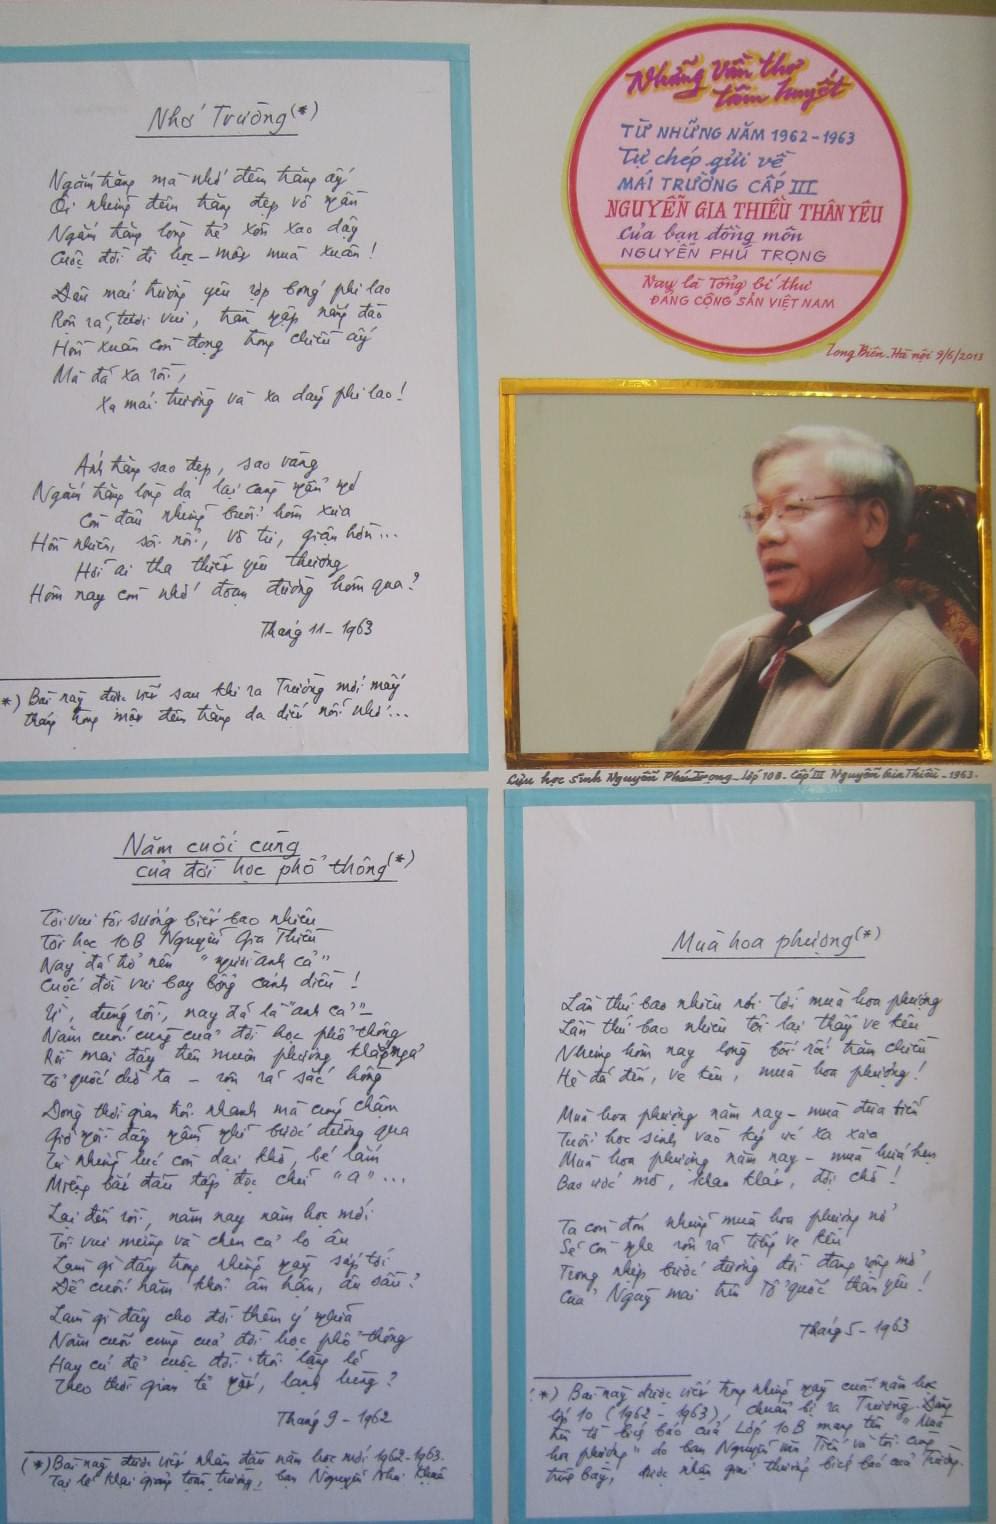 Nhớ Trường (*)
Ngắm trăng mà nhớ đêm trăng ấy
Ôi những đêm trăng đẹp vô ngần
Ngắm trăng lòng thể xốn xao dậy
Cuộc đời đi học - mấy mùa xuân!
Đâu mái trường yêu rợp bóng phi lao
Rộn rã, tươi vui, tràn ngập nắng đào
Hồn xuân còn đọng trong chiều ấy
Mà đã xa rồi,
Xa mái trường và xa dãy phi lao!
Ánh trăng sao đẹp, sao vàng
Ngắm trăng lòng dạ lại càng ngẩn ngơ
Còn đâu những buổi hôm xưa
Hồn nhiên, sôi nổi, vô tư, giận hờn...
Hỏi ai tha thiết yêu thương
Hôm nay còn nhớ đoạn đường hôm qua?
Tháng 11 - 1963
*) Bài này được viết sau khi ra Trường mới mấy
tháng trong một đêm trăng da diết nỗi nhớ...
Những vần thơ
tâm huyết
TỪ NHỮNG NĂM 1962-1963
Tự chép gửi về
MÁI TRƯỜNG CẤP III
NGUYỄN GIA THIỀU THÂN YÊU
của bạn đồng môn
NGUYỄN PHÚ TRỌNG
Nay là Tổng bí thư
ĐẢNG CỘNG SẢN VIỆT NAM
Long Biên - Hà nội 9/6/2013
Cựu học sinh Nguyễn Phú Trọng - Lớp 10B - Cấp III Nguyễn Gia Thiều - 1963.
Năm cuối cùng
của đời học phổ thông (*)
Tôi vui tôi sướng biết bao nhiêu
Tôi học 10B Nguyễn Gia Thiều
Nay đã trở nên "người anh cả"
Cuộc đời vui bay bổng cánh diều!
Ừ, đúng rồi, nay đã là "anh cả" -
Năm cuối cùng của đời học phổ thông
Rồi mai đây trên muôn phương khắp ngả
Tổ quốc chờ ta - rộn rã sắc hồng
Dòng thời gian trôi nhanh mà cũng chậm
Giờ ngồi đây ngẫm nghĩ bước đường qua
Từ những lúc còn dại khờ, bé lắm
Miệng bắt đầu tập đọc chữ "a"...
Lại đến rồi, năm nay năm học mới
Tôi vui mừng và chen cả lo âu
Làm gì đây trong những ngày sắp tới
Để cuối năm khỏi ân hận, âu sầu?
Làm gì đây cho đời thêm ý nghĩa
Năm cuối cùng của đời học phổ thông
Hay cứ để cuộc đời trôi lặng lẽ
Theo thời gian tẻ ngắt, lạnh lùng?
Tháng 9 - 1962
(*) Bài này được viết nhân đầu năm học mới 1962-1963.
Tại lễ khai giảng toàn trường, bạn Nguyễn Như
Mùa hoa phượng (*)
Lần thứ bao nhiêu rồi tới mùa hoa phượng
Lần thứ bao nhiêu tôi lại thấy ve kêu
Nhưng hôm nay lòng bồi rồi trăm chiều
Hè đã đến, ve kêu, mùa hoa phượng!
Mùa hoa phượng năm nay - mùa đưa tiễn
Tuổi học sinh vào ký ức xa xưa
Mùa hoa phượng năm nay - mùa hứa hẹn
Bao ước mơ, khao khát, đợi chờ!
Ta còn đón những mùa hoa phượng nở
Sẽ còn nghe rộn rã tiếng ve kêu
Trong nhịp bước đường đời đang rộng mở
Của Ngày mai trên Tổ quốc thân yêu!
Tháng 5 - 1963
(*) Bài này được viết trong những ngày cuối năm học
lớp 10 (1962 - 1963), chuẩn bị ra Trường. Đúng
khi tờ bích báo của Lớp 10B mang tên "Mùa
hoa phượng" do bạn Nguyễn Tiến và tôi cùng
trình bày, được nhận giải thưởng bích báo của Trường.